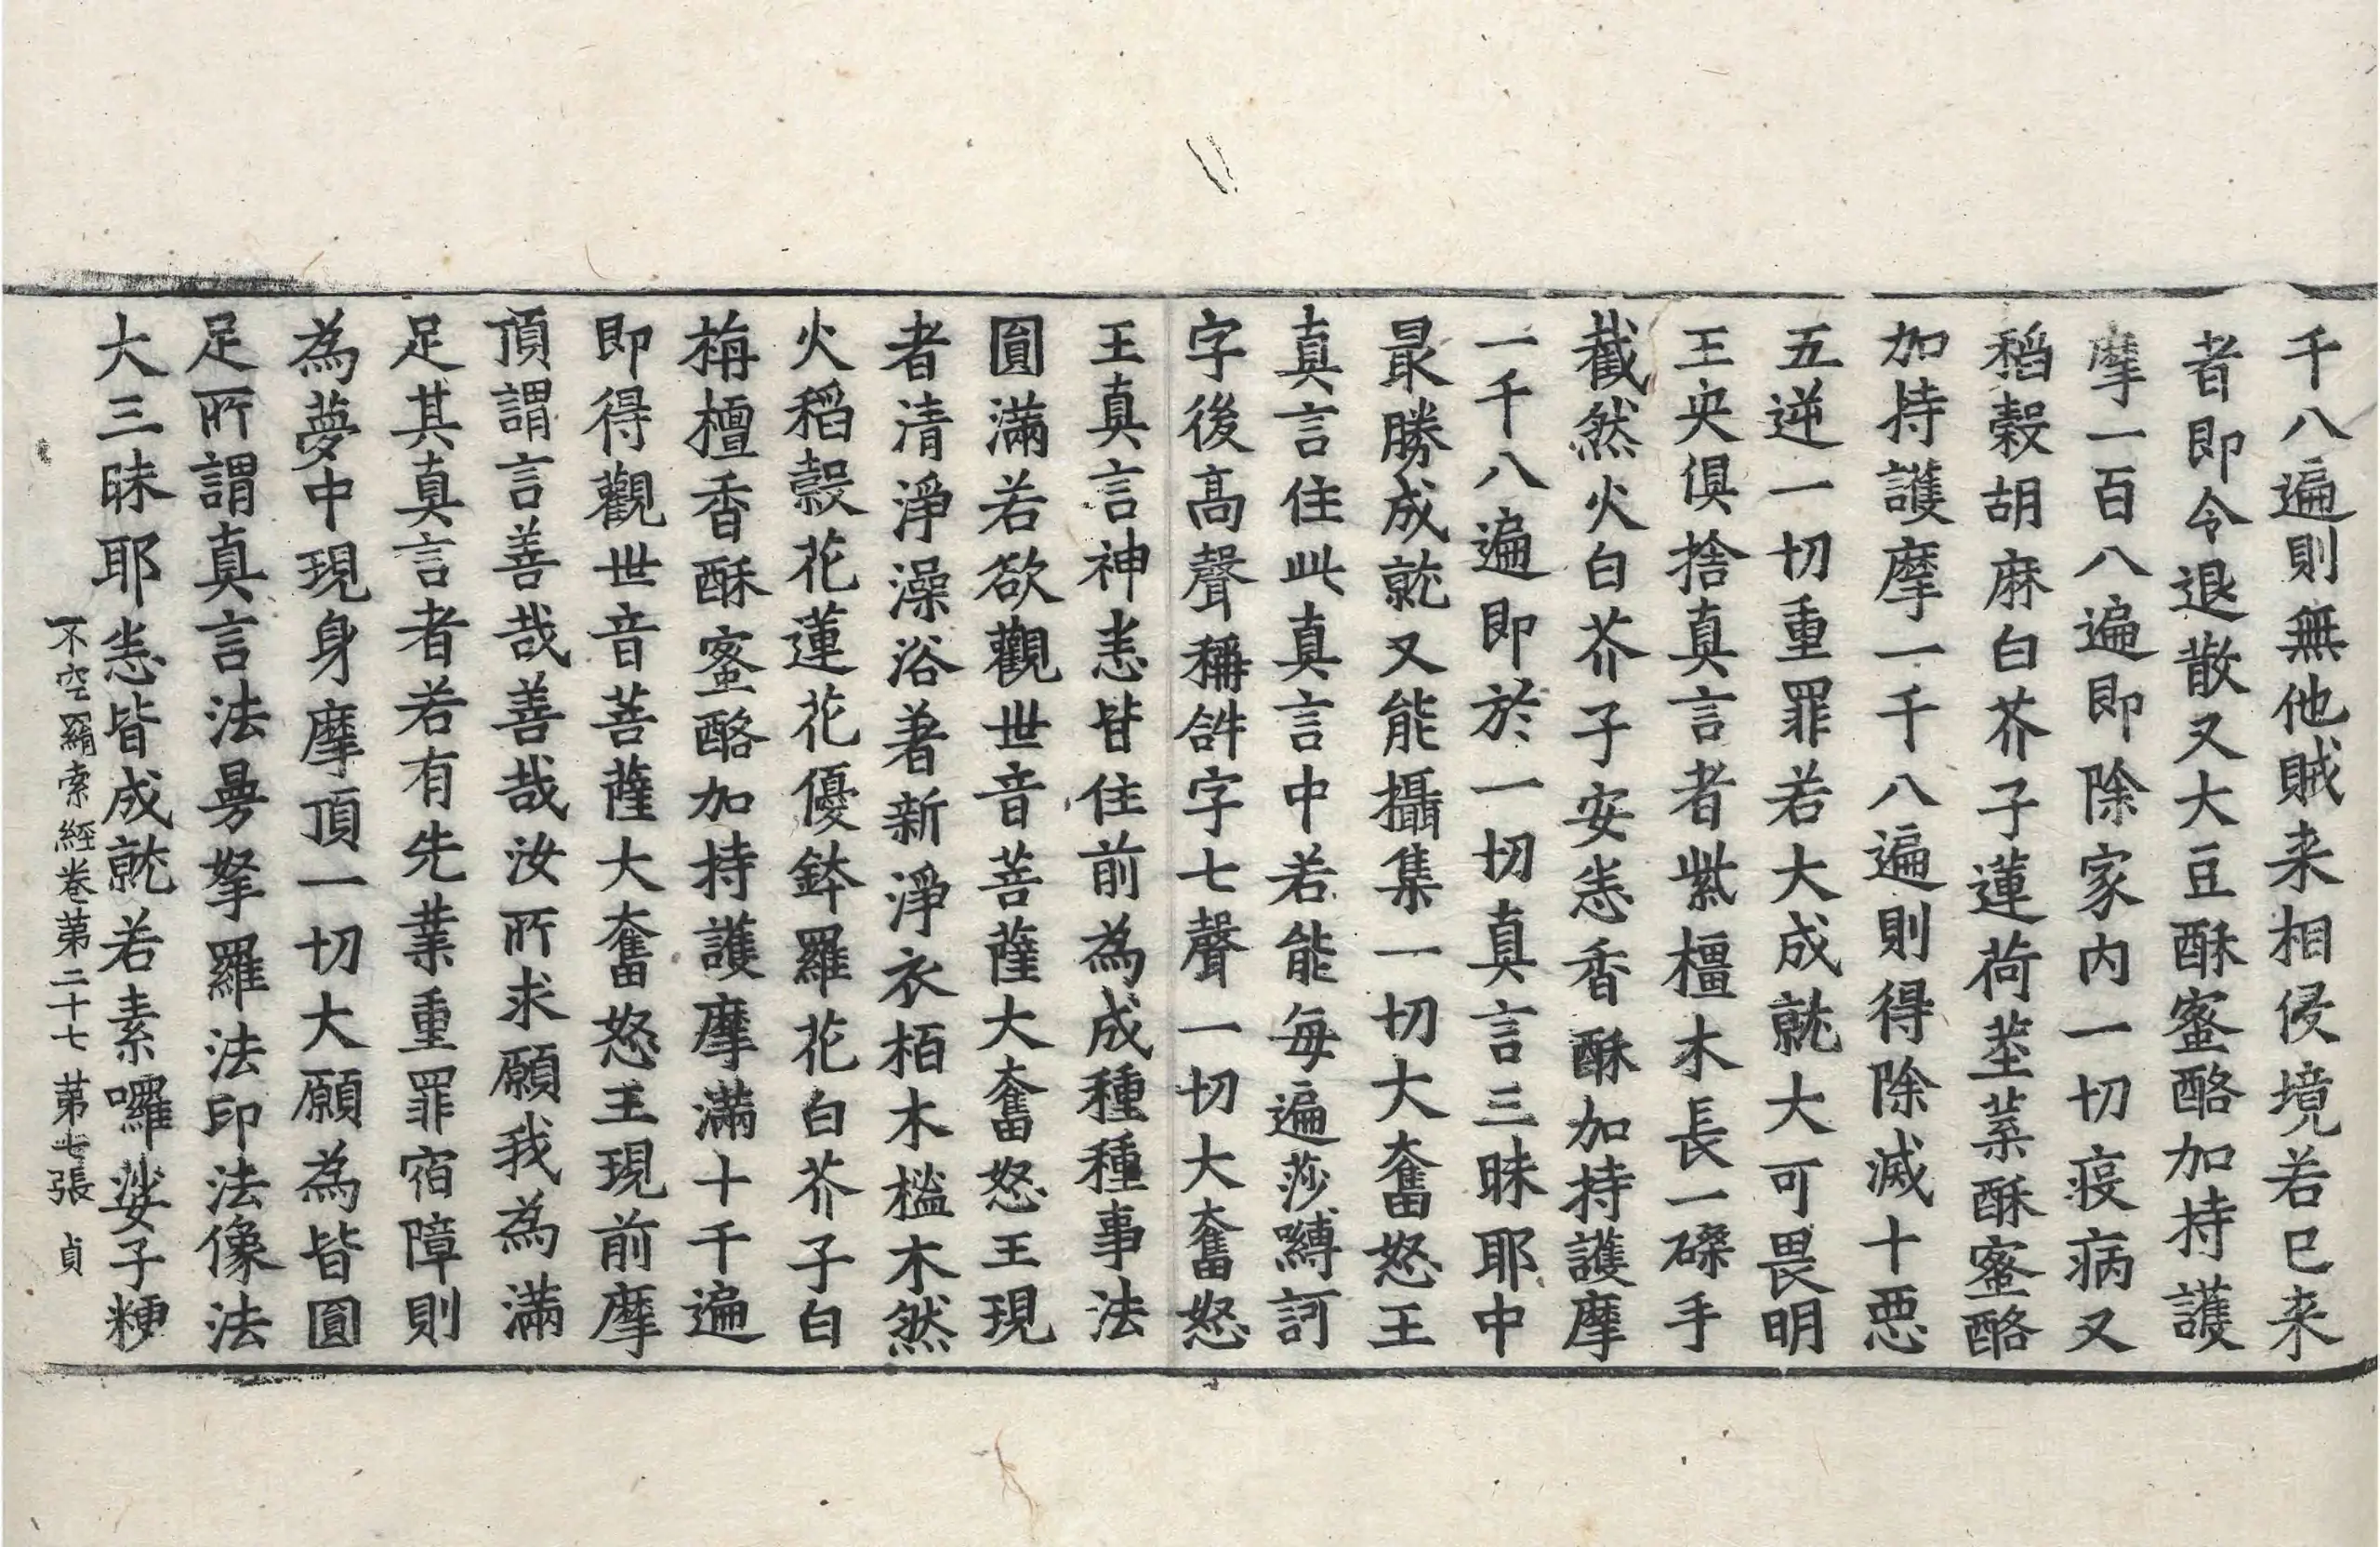 千八遍則無他賊来相侵境若已来
者即令退散又大豆酥蜜酪加持護
摩一百八遍即除家内一切疫病又
稻穀胡麻白芥子蓮荷莖葉酥蜜酪
加持護摩一千八遍則得除滅十惡
五逆一切重罪若大成就大可畏明
王央俱捨真言者紫橿木長一磔手
截然火白芥子安悉香酥加持護摩
一千八遍即於一切真言三昧耶中
最勝成就又能攝集一切大奮怒王
真言住此真言中若能每遍莎嚩訶
字後高聲稱𤙖字七聲一切大奮怒
王真言神悉皆住前為成種種事法
圓滿若欲觀世音菩薩大奮怒王現
者清淨澡浴著新淨衣栢木榓木然
火稻穀花蓮花優鉢羅花白芥子白
栴檀香酥蜜酪加持護摩滿十千遍
即得觀世音菩薩大奮怒王現前摩
頂謂言善哉善哉汝所求願我為滿
足其真言者若有先業重罪宿障則
為夢中現身摩頂一切大願為皆圓
足所謂真言法曼拏羅法印法像法
大三昧耶悉皆成就若素囉娑子粳
不空羂索經卷第二十七 第七張 貞